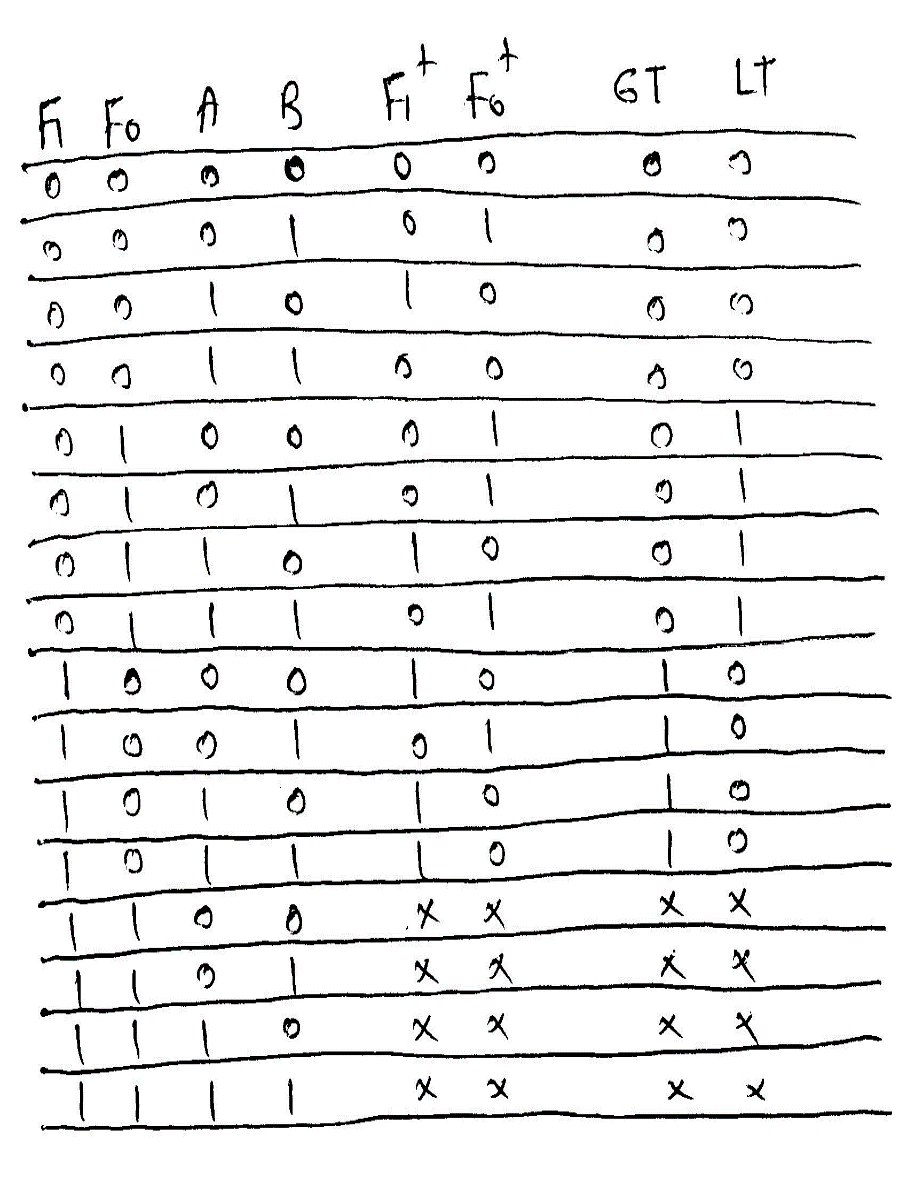 F1 F0 A B F1+ F0+ GT LT
0 0 0 0 0 0 0 0
0 0 0 1 0 1 0 0
0 0 1 0 1 0 0 0
0 0 1 1 0 0 0 0
0 1 0 0 0 1 0 1
0 1 0 1 0 1 0 1
0 1 1 0 1 0 0 1
0 1 1 1 0 1 0 1
1 0 0 0 1 0 1 0
1 0 0 1 0 1 1 0
1 0 1 0 1 0 1 0
1 0 1 1 1 0 1 0
1 1 0 0 x x x x
1 1 0 1 x x x x
1 1 1 0 x x x x
1 1 1 1 x x x x